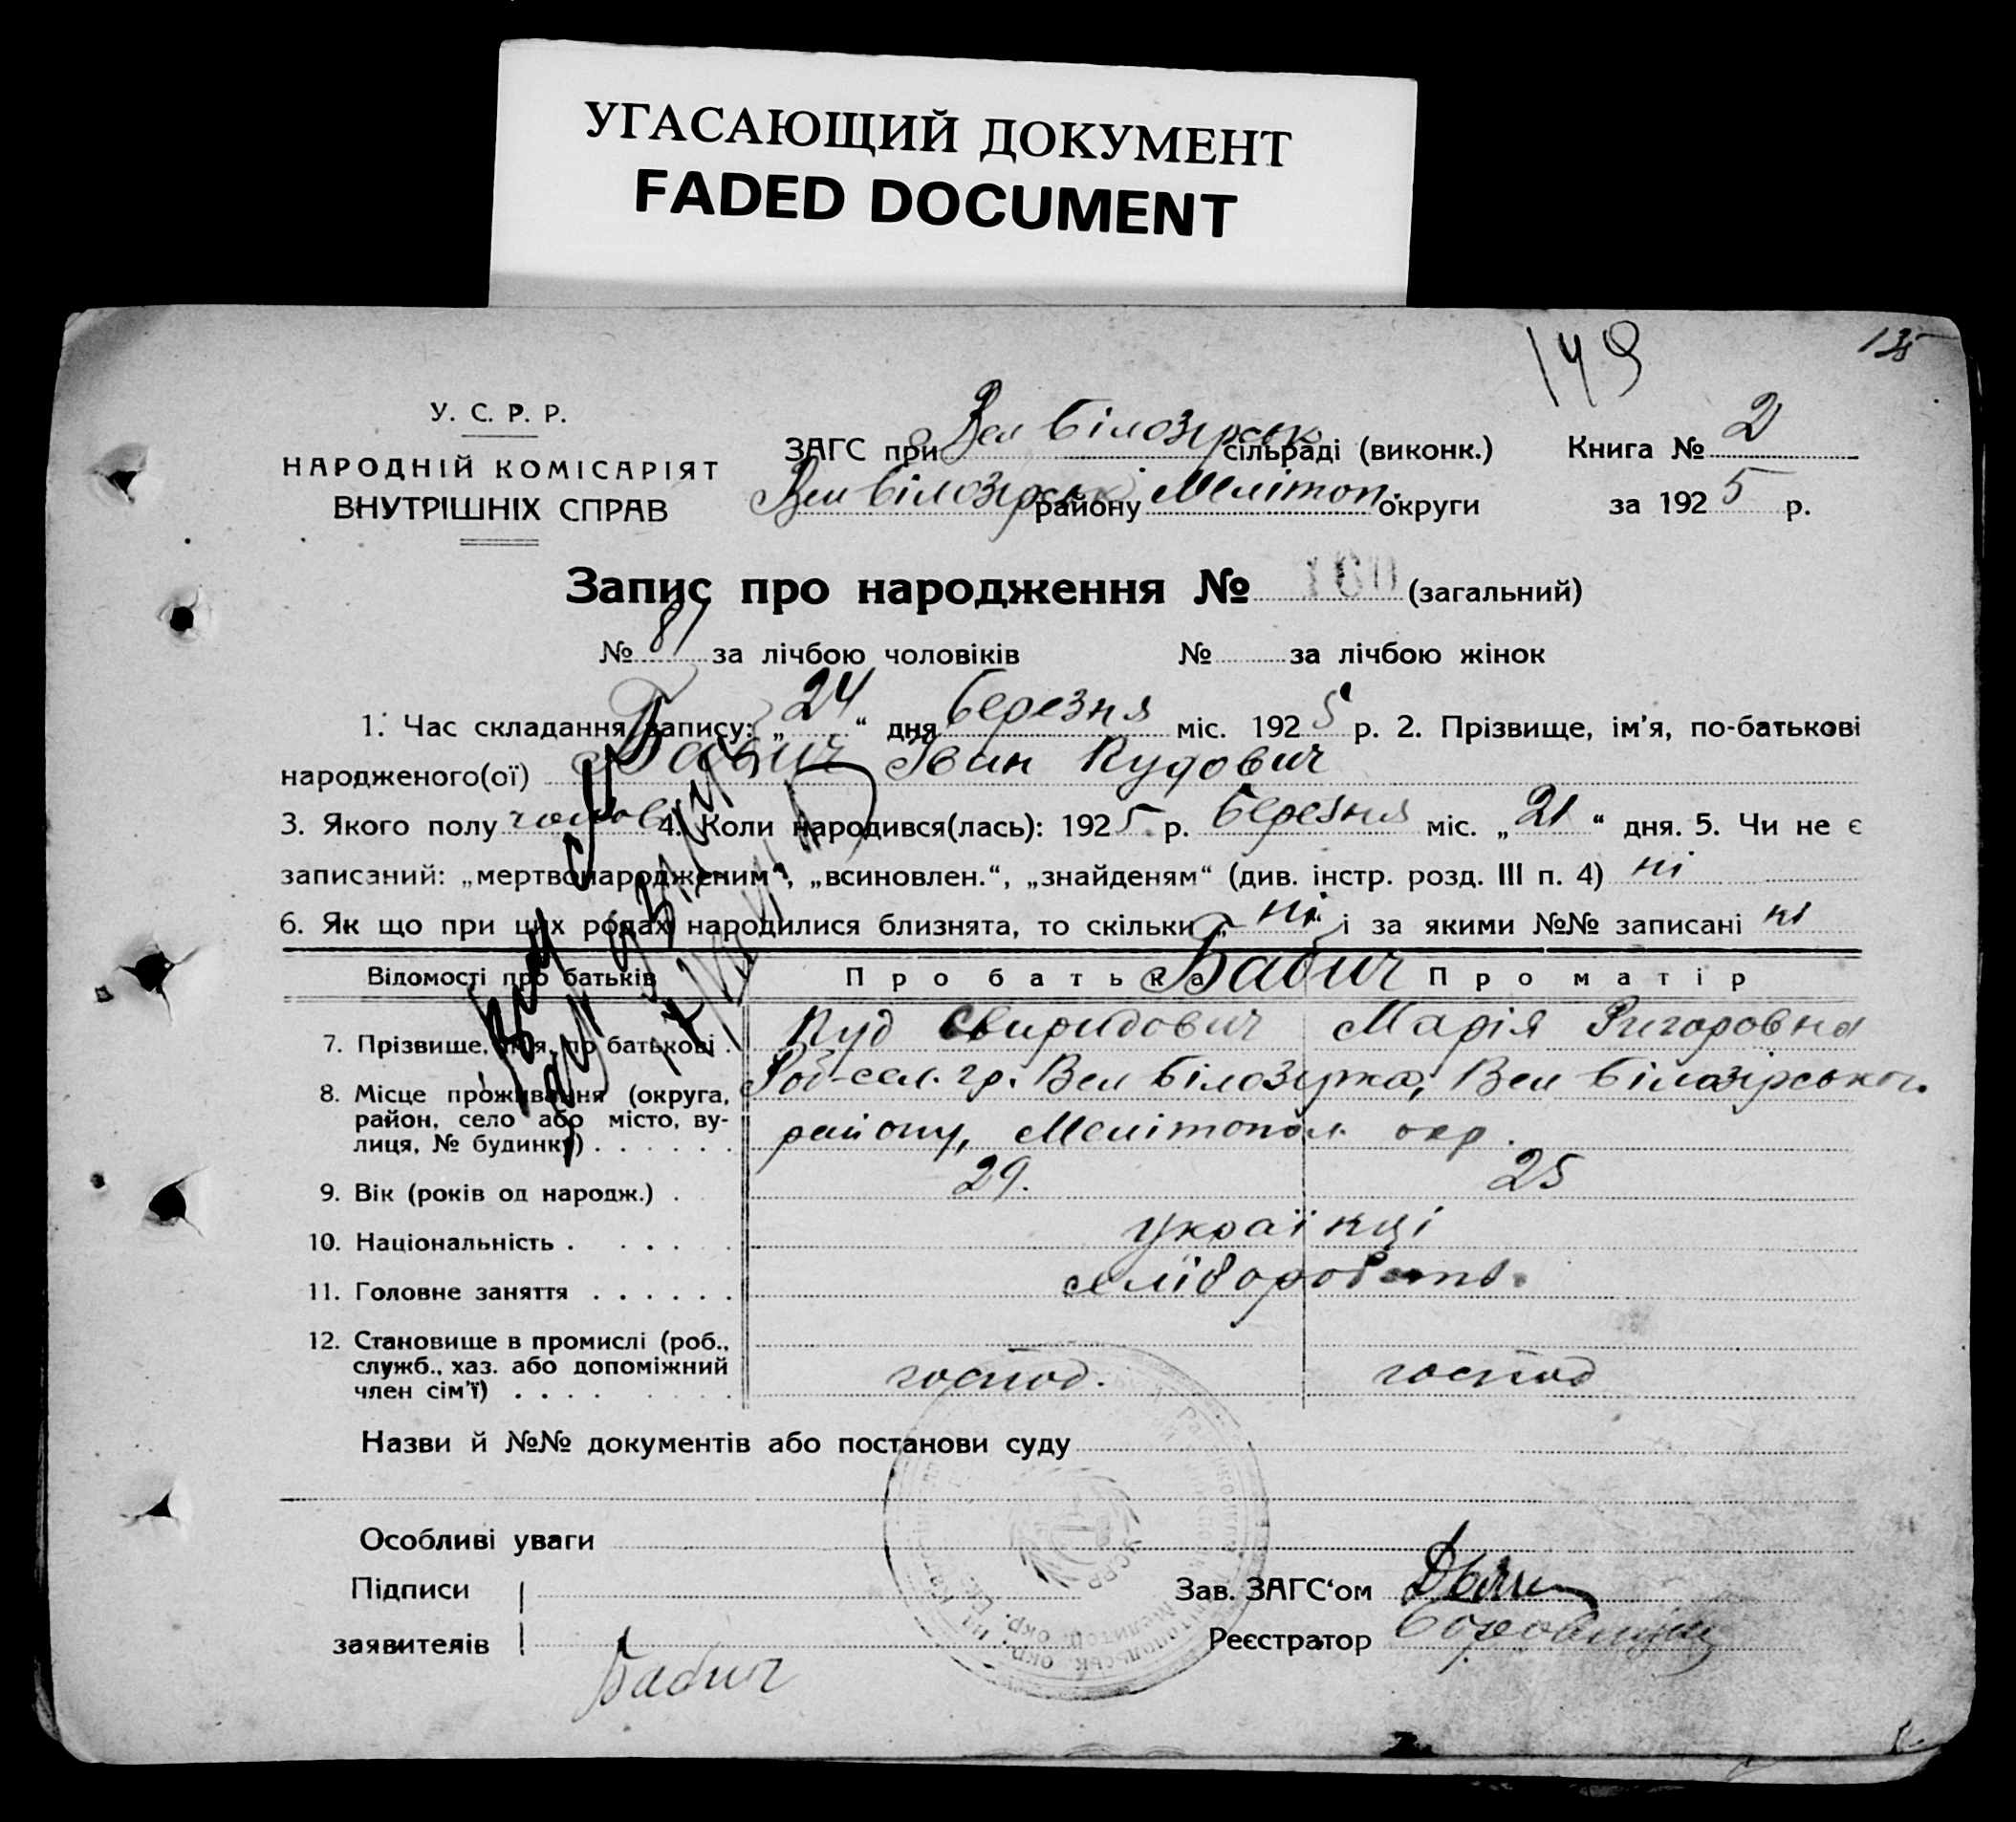 УГАСАЮЩИЙ ДОКУМЕНТ
FADED DOCUMENT
149
135
У. С. Р. Р.
НАРОДНІЙ КОМІСАРІЯТ
ВНУТРІШНІХ СПРАВ
ЗАГС при Вел Білозірськ сільраді (виконк.) Книга № 2
Вел Білозірськ району Мелітоп. округи за 1925 р.
Запис про народження № (загальний)
№ 81 за лічбою чоловіків № за лічбою жінок
1. Час складання запису: „24“ дня березня міс. 1925 р. 2. Прізвище, ім'я, по-батькові
народженого(ої) Бабич Іван Кудович
3. Якого полу чолов 4. Коли народився(лась): 1925 р. березня міс. „21“ дня. 5. Чи не є
записаний: „мертвонародженим“, „всиновлен.“, „знайденям“ (див. інстр. розд. III п. 4) ні
6. Як що при цих родах народилися близнята, то скільки „ ні і за якими №№ записані ні
Відомості про батьків Про батька Бабич Про матір
7. Прізвище, ім'я, по батькові . Куд Свиридович Марія Григоровна
8. Місце проживання (округа, район, село або місто, вулиця, № будинку) . . . . . . Вел Білозірка, Вел Білозірського
району, Мелітопол. окр.
9. Вік (років од народж.) . 29. 25
10. Національність . . . . . українці
11. Головне заняття . . . . . .
12. Становище в промислі (роб., служб., хаз. або допоміжний член сім'ї) . . . . господ. господ
Назви й №№ документів або постанови суду
Особливі уваги
Підписи
заявителів
Бабич
Зав. ЗАГС‘ом
Реєстратор
УСРР